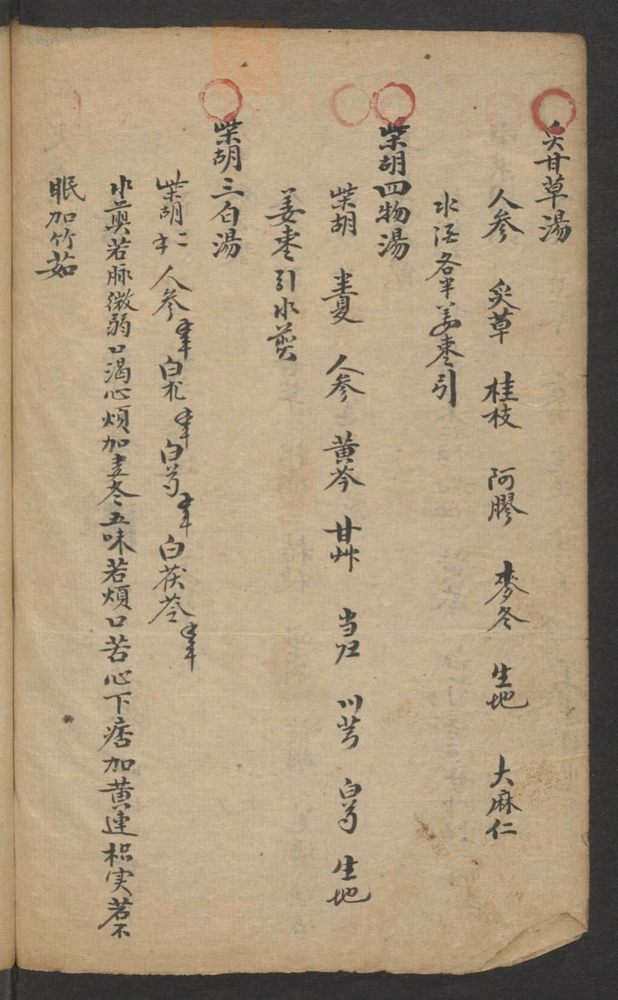 炙甘草湯
人参 炙草 桂枝 阿膠 麥冬 生地 大麻仁
水酒各半姜棗引
柴胡四物湯
柴胡 半夏 人参 黄芩 甘艸 当归 川芎 白芍 生地
姜棗引水煎
柴胡三白湯
柴胡 人参 白朮 白芍 白茯苓
水煎若脉微弱口渴心煩加麦冬五味若煩口苦心下痞加黄連枳实若不
眠加竹茹